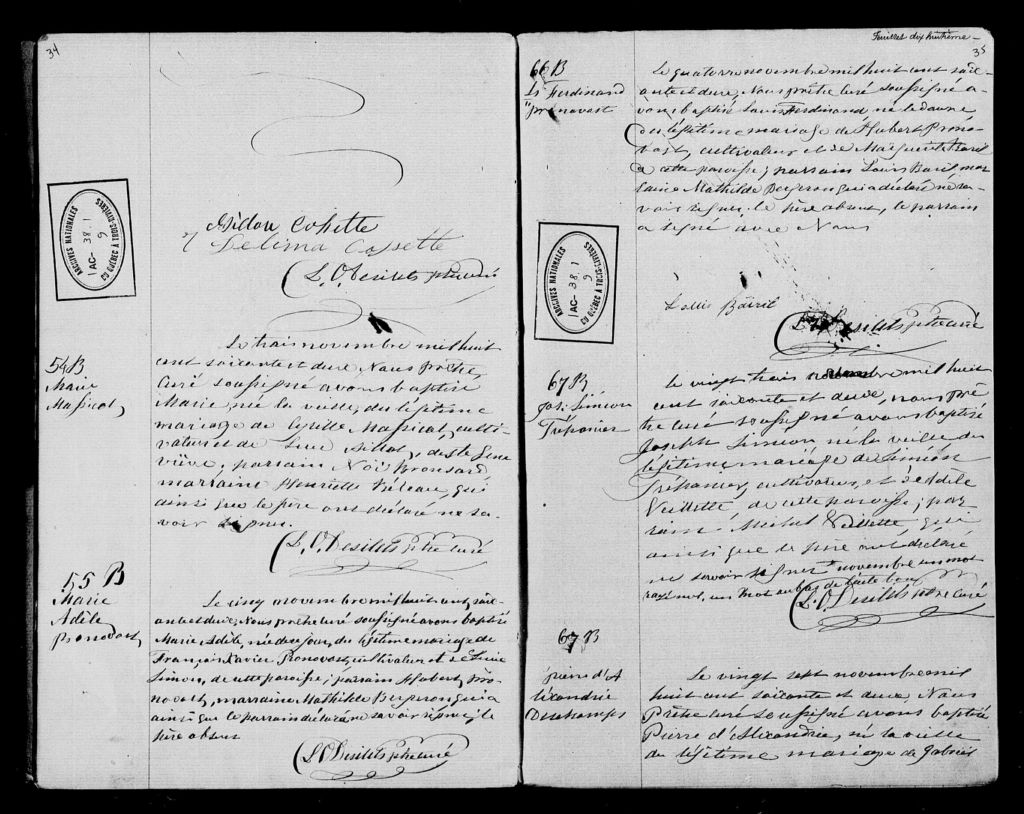 34
Gédéon Cossette
Délima Cossette
L. O. Desilets ptre curé
ARCHIVES NATIONALES
AC- 38.1
9
DU QUÉBEC À TROIS-RIVIÈRES
54 B
Marie
Massicot
Le trois novembre mil huit
cent soixante et deux, Nous prêtre
Curé soussigné avons baptisé
Marie, née la veille, du légitime
mariage de Massicot, culti-
vateur et de Luce, de Ste Gene
viève, parrain Noë Brousard
marraine Henriette, qui
ainsi que le père ont déclaré ne sa-
voir signer.
L. O. Desilets ptre curé
55 B
Marie
Adèle
Pronovost
Le cinq novembre mil huit cent soix-
ante et deux, Nous prêtre curé soussigné avons baptisé
Marie Adèle, née du jour, du légitime mariage de
François Xavier Pronovost, cultivateur et de
Simon, de cette paroisse; parrain Hubert Pro-
novost, marraine Mathilde Bergeron qui a
ainsi que le parrain déclaré ne savoir signer, le
père absent
L. O. Desilets ptre curé
Feuillet dix huitième
35
66 B
Ls Ferdinand
Pronovost
Le quatorze novembre mil huit cent soix-
ante et deux, Nous prêtre curé soussigné a-
vons baptisé Louis Ferdinand né le
du légitime mariage de Hubert Prono-
vost, cultivateur et de Marguerite Baril
de cette paroisse; parrain Louis Baril, mar
raine Mathilde Bergeron qui a déclaré ne sa-
voir signer, le père absent, le parrain
a signé avec Nous
Louis Baril
L. O. Desilets ptre curé
ARCHIVES NATIONALES
AC- 38.1
9
DU QUÉBEC À TROIS-RIVIÈRES
67 B
Jos. Siméon
Trépanier
Le vingt trois novembre mil huit
cent soixante et deux, nous prê
tre curé soussigné avons baptisé
Joseph Siméon né la veille du
légitime mariage de Siméon
Trépanier, cultivateur, et d'Edile
Veillette, de cette paroisse; par
rain Michel Veillette, qui
ainsi que le père ont déclaré
ne savoir signer novembre un mot
rayé nul, un mot au bas de
L. O. Desilets ptre curé
67 B
pierre d'A
lexandrie
Deschamps
Le vingt sept novembre mil
huit cent soixante et deux, Nous
Prêtre curé soussigné avons baptisé
Pierre d'Alexandrie, né la veille
du légitime mariage de Gabriel